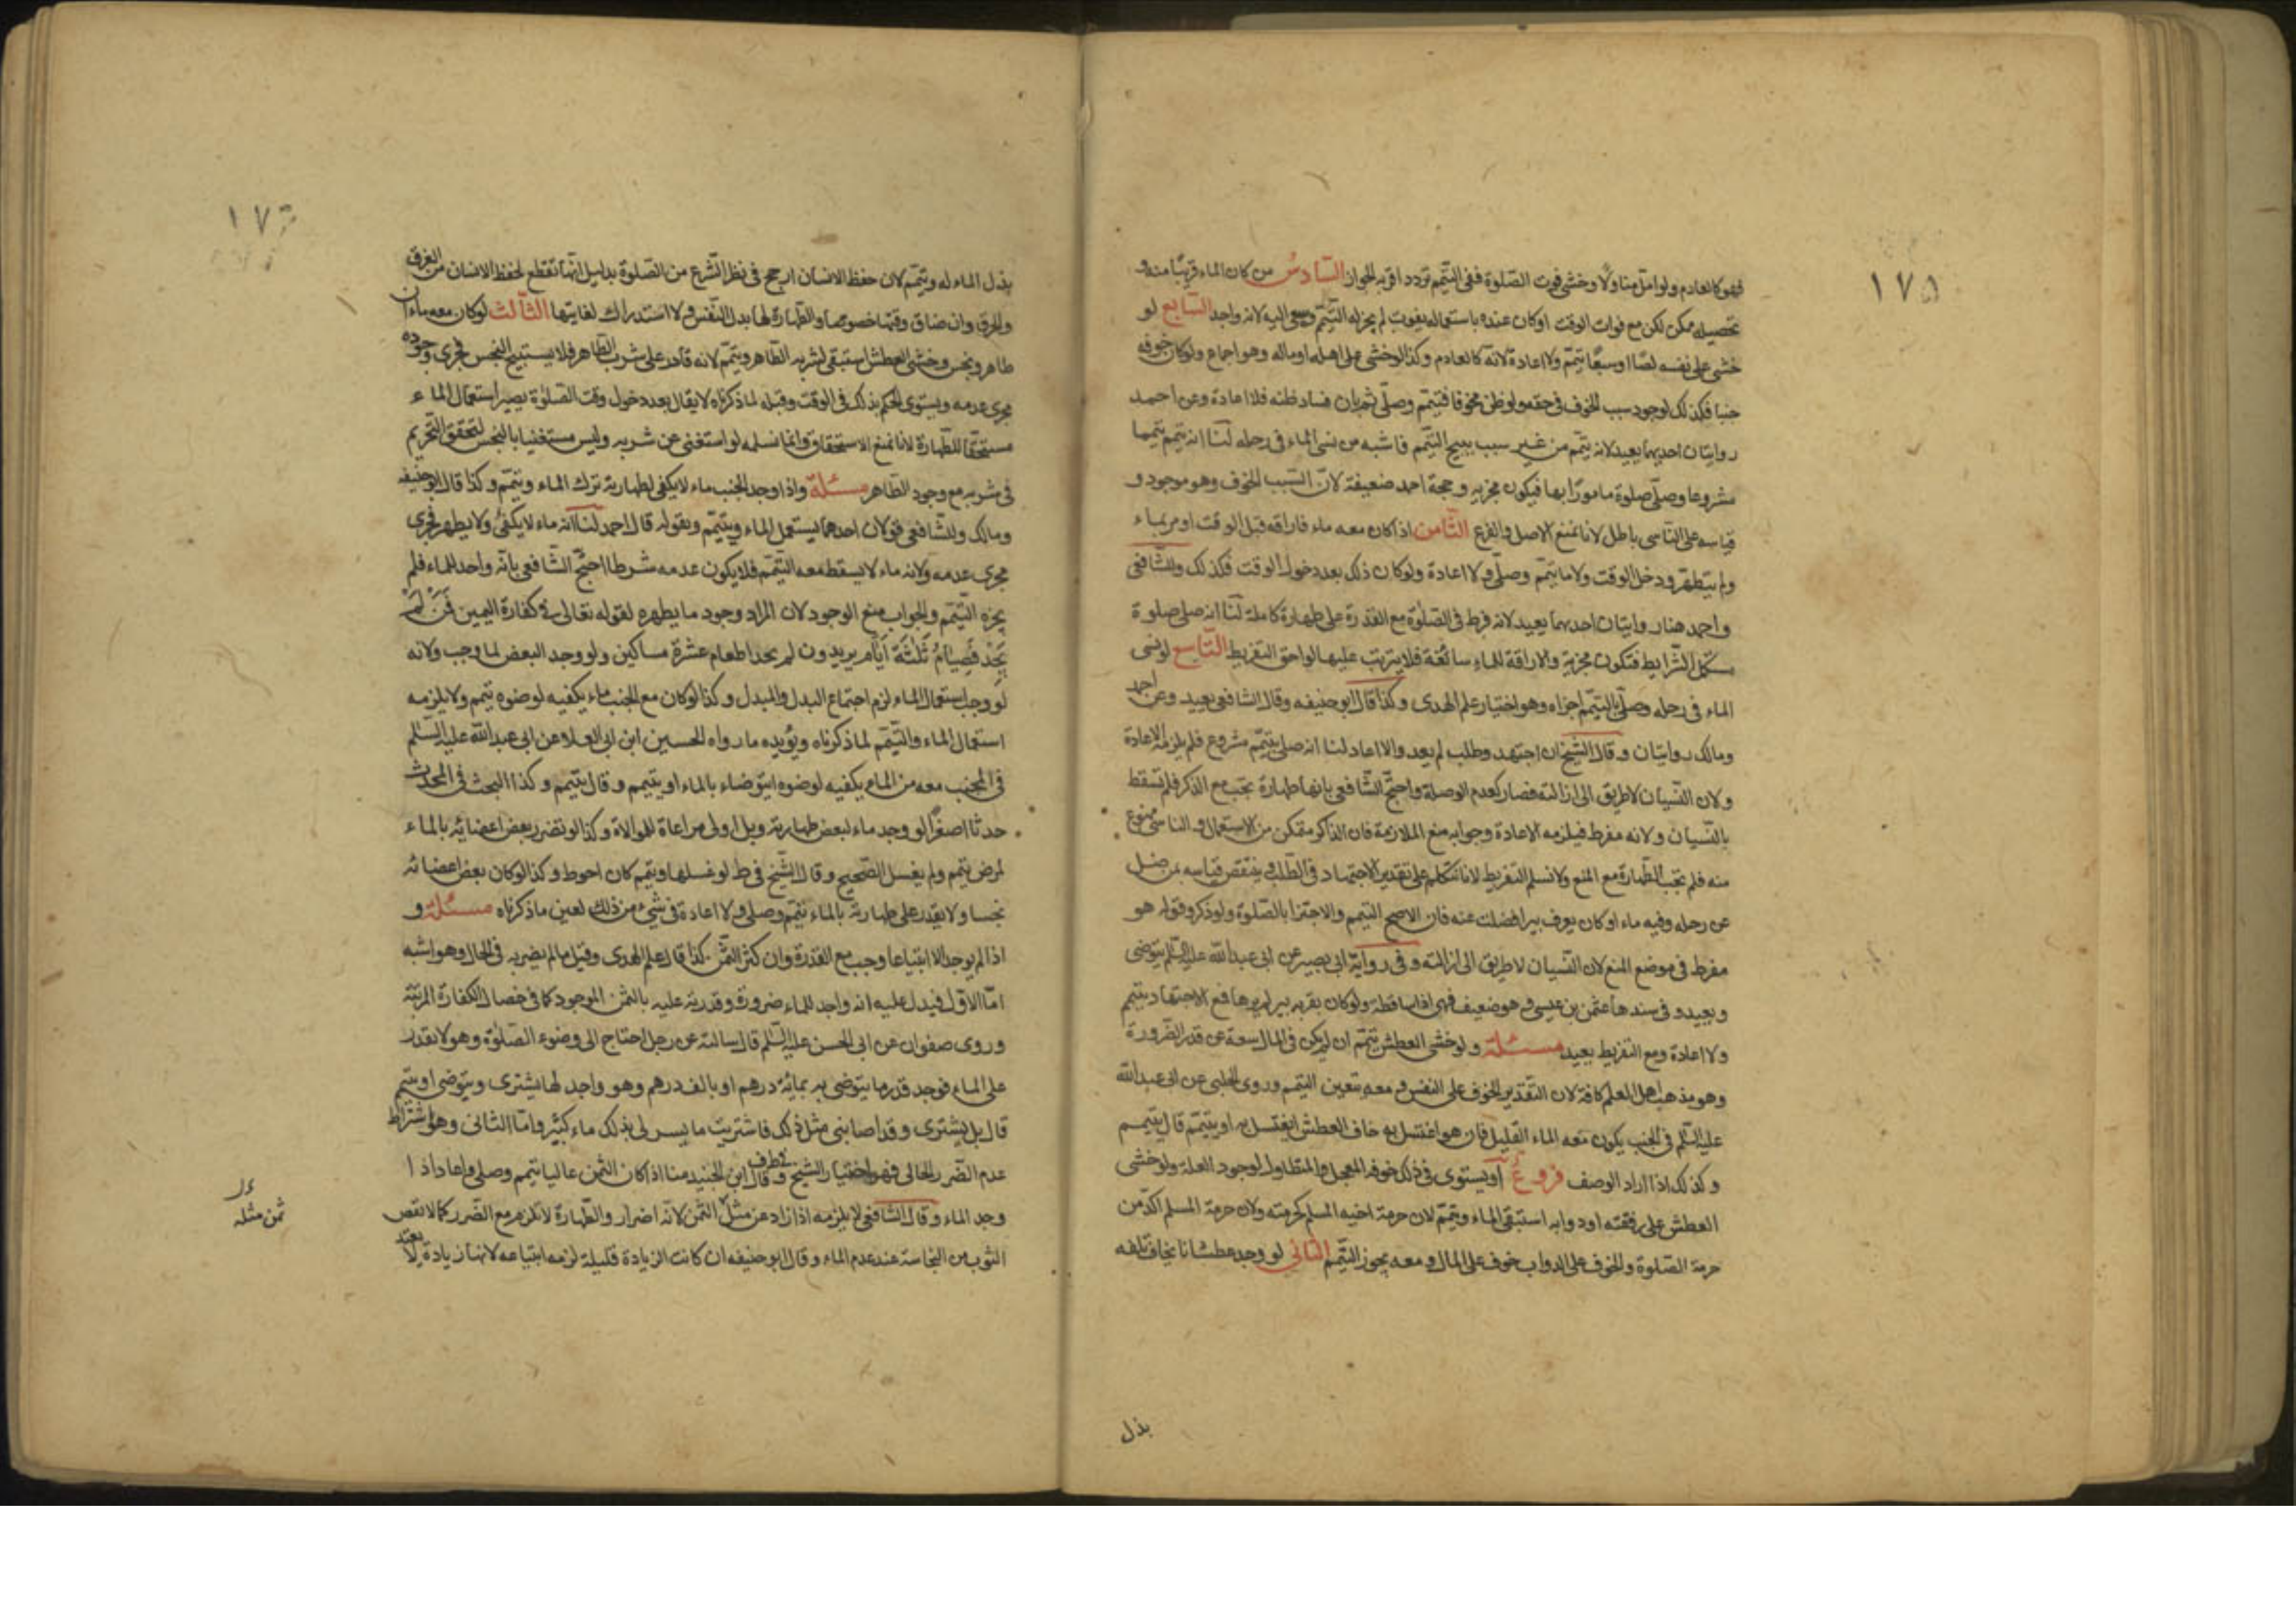 ١٧٥
فهو كالعادم ولو امل مناولا وخشى فوت الصلوة ففى التيمم تردد اقربه الجواز السادس من كان الماء قريبا منه و
تحصيله ممكن لكن مع فوات الوقت او كان عنده باستعماله يفوت لم يجز له التيمم وسعى اليه لانه واجد السابع لو
خشى على نفسه لصا او سبعا يتيمم ولا اعادة لانه كالعادم وكذا لو خشى على اهله او ماله وهو اجماع ولو كان خوفه
جبنا فكذلك لوجود سبب الخوف فى حقه ولو ظن مخوفا فتيمم وصلى ثم بان فساد ظنه فلا اعادة وعن احمد
روايتان احديهما يعيد لانه يتيمم من غير سبب يبيح التيمم فاشبه من نسى الماء فى رحله لنا انه تيمم تيمما
مشروعا وصلى صلوة مامورا بها فيكون مجزيه وحجة احمد ضعيفة لان السبب الخوف وهو موجود و
قياسه على الناسى باطل لانا نمنع الاصل والفرع الثامن اذا كان معه ماء فاراقه قبل الوقت او مر بماء
ولم يتطهر ودخل الوقت ولا ما تيمم وصلى ولا اعادة ولو كان ذلك بعد دخول الوقت فكذلك وللشافعى
واحمد هنا روايتان احديهما يعيد لانه فرط فى الصلوة مع القدرة على طهارة كاملة لنا انه صلى صلوة
مستكملة الشرايط فتكون مجزية والاراقة للماء سائغة فلا يترتب عليها لواحق التفريط التاسع لو نسى
الماء فى رحله وصلى بالتيمم اجزاه وهو اختيار علم الهدى وكذا قال ابو حنيفه وقال الشافعى يعيد وعن احمد
ومالك روايتان وقال الشيخ ان اجتهد وطلب لم يعد والا اعاد لنا انه صلى بتيمم مشروع فلم يلزمه الاعادة
ولان النسيان لا طريق الى ازالته فصار كعدم الوصلة واحتج الشافعى بانها طهارة تجب مع الذكر فلم تسقط
بالنسيان ولانه مفرط فيلزمه الاعادة وجوابه منع الملازمة فان الذاكر متمكن من الاستعمال والناسى ممنوع
منه فلم تجب الطهارة مع المنع ولا نسلم التفريط لانا نتكلم على تقدير الاجتهاد فى الطلب وينتقض قياسه بمن ضل
عن رحله وفيه ماء او كان يعرف بيرا فضلت عنه فان الاصح التيمم والاجتزا بالصلوة ولو ذكر وقوله هو
مفرط فى موضع المنع لان النسيان لا طريق الى ازالته وفى رواية ابى بصير عن ابى عبد الله عليه السلم يتوضى
ويعيد وفى سندها عثمن بن عيسى وهو ضعيف فهى اذا ساقطة ولو كان بقربه بير لم يرها فمع الاجتهاد يتيمم
ولا اعادة ومع التفريط يعيد مسئلة ولو خشى العطش تيمم ان لم يكن فى الماء سعة عن قدر الضرورة
وهو مذهب اهل العلم كافة لان التقدير الخوف على النفس ومعه يتعين التيمم وروى الحلبى عن ابى عبد الله
عليه السلم فى الجنب يكون معه الماء القليل فان هو اغتسل به خاف العطش ايغتسل به او يتيمم قال يتيمم
وكذلك اذا اراد الوصف فروع آ ويستوى فى ذلك خوفه المعجل والمتطاول لوجود العلة ولو خشى
العطش على رفقته او دوابه استبقى الماء وتيمم لان حرمة اخيه المسلم كحرمته ولان حرمة المسلم اكد من
حرمة الصلوة والخوف على الدواب خوف على المال ومعه يجوز التيمم الثانى لو وجد عطشانا يخاف تلفه
بذل
١٧٦
بذل الماء له ويتيمم لان حفظ الانسان ارجح فى نظر الشرع من الصلوة بدليل انها تقطع لحفظ الانسان من الغرق
والحرق وان ضاق وقتها خصوصا والطهارة لها بدل النفس ولا استدراك لفايتها الثالث لو كان معه ماءان
طاهر ونجس وخشى العطش استبقى لشربه الطاهر ويتيمم لانه قادر على شرب الطاهر فلا يستبيح النجس فجرى وجوده
مجرى عدمه ويستوى الحكم بذلك فى الوقت وقبله لما ذكرناه لا يقال بعد دخول وقت الصلوة يصير استعمال الماء
مستحقا للطهارة لانا نمنع الاستحقاق وانما نسلمه لو استغنى عن شربه وليس مستغنيا بالنجس لتحقق التحريم
فى شربه مع وجود الطاهر مسئلة واذا وجد الجنب ماء لا يكفى لطهارته ترك الماء وتيمم وكذا قال ابو حنيفه
ومالك وللشافعى قولان احدهما يستعمل الماء ويتيمم وبقوله قال احمد لنا انه ماء لا يكفى ولا يطهر فجرى
مجرى عدمه ولانه ماء لا يسقط معه التيمم فلا يكون عدمه شرطا احتج الشافعى بانه واجد للماء فلم
يجزه التيمم والجواب منع الوجود لان المراد وجود ما يطهره لقوله تعالى فى كفارة اليمين فَمَنْ لَمْ
يَجِدْ فَصِيَامُ ثَلٰثَةَ اَيَّامٍ يريد ون لم يجد اطعام عشرة مساكين ولو وجد البعض لما وجب ولانه
لو وجب استعمال الماء لزم اجتماع البدل والمبدل وكذا لو كان مع الجنب ماء يكفيه لوضوه تيمم ولا يلزمه
استعمال الماء والتيمم لما ذكرناه ويؤيده ما رواه الحسين ابن ابى العلا عن ابى عبد الله عليه السلم
فى المجنب معه من الماء يكفيه لوضوه ايتوضاء بالماء او يتيمم وقال يتيمم وكذا البحث فى المحدث
حدثا اصغرا لو وجد ماء لبعض طهارته وبل اولى مراعاة للموالاة وكذا لو تضرر بعض اعضائه بالماء
لمرض تيمم ولم يغسل الصحيح وقال الشيخ فى ط لو غسلها وتيمم كان احوط وكذا لو كان بعض اعضائه
نجسا ولا يقدر على طهارته بالماء تيمم وصلى ولا اعادة فى شىء من ذلك لعين ما ذكرناه مسئلة و
اذا لم يوجد الا ابتياعا وجب مع القدرة وان كثر الثمن كذا قال علم الهدى وقيل ما لم يضر به فى الحال وهو اشبه
اما الاول فيدل عليه انه واجد للماء ضرورة وقدرته عليه بالثمن الموجود كما فى خصال الكفارة المرتبة
وروى صفوان عن ابى الحسن عليه السلم قال سالته عن رجل احتاج الى وضوء الصلوة وهو لا يقدر
على الماء فوجد قدر ما يتوضى به بمائة درهم او بالف درهم وهو واجد لها يشترى ويتوضى او يتيمم
قال بل يشترى وقد اصابنى مثل ذلك فاشتريت ما يسر لى بذلك ماء كثير واما الثانى وهو اشتراط
عدم الضرر الحالى فهو اختيار الشيخ وقال ابن الجنيد منا اذا كان الثمن عاليا تيمم وصلى واعاد اذا
وجد الماء وقال الشافعى لا يلزمه اذا زاد عن مثل الثمن لانه اضرار والطهارة لا تلزم مع الضرر كما لا نقص
الثوب من النجاسة عند عدم الماء وقال ابو حنيفه ان كانت الزيادة قليلة لزمه ابتياعه لانها زيادة لا يعتد
ثمن مثله